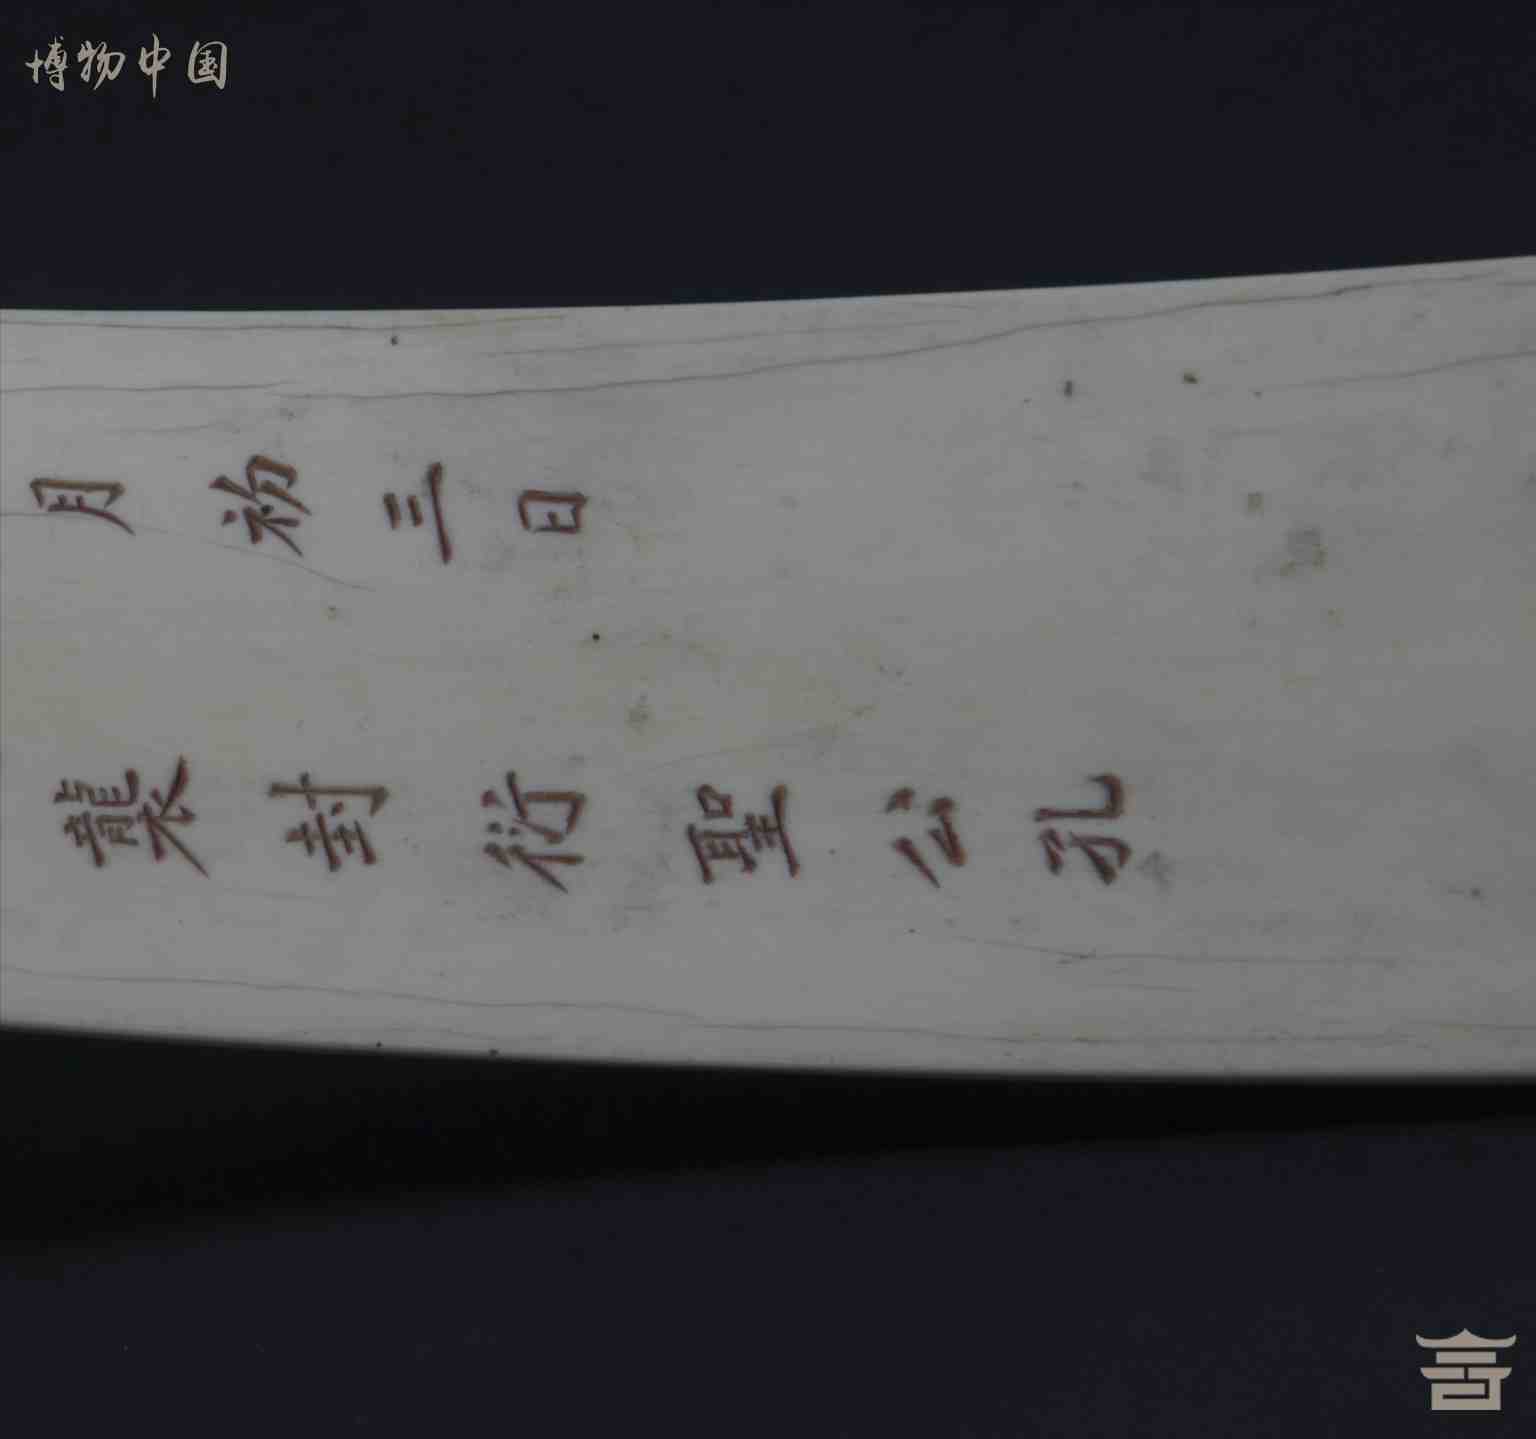 博物中国
月初三日
襲封衍聖公孔